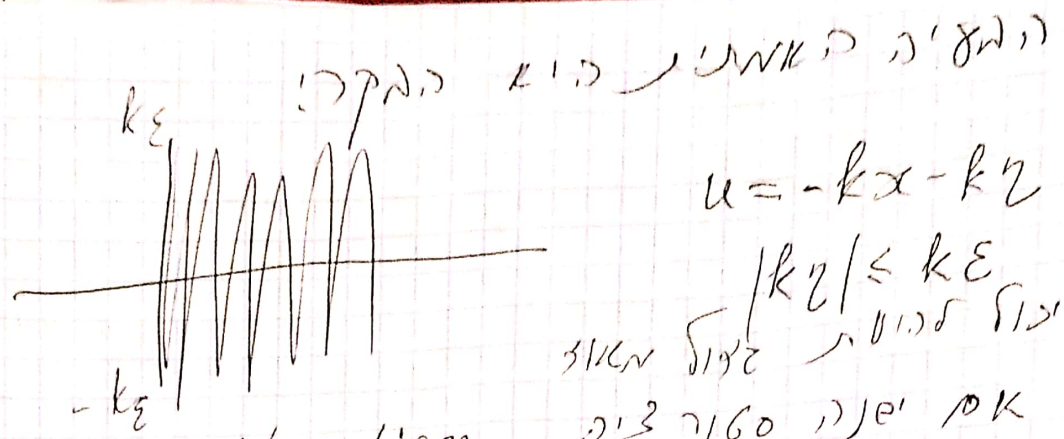 הבעיה האמתית היא הבקרה!
kε
u = -kx - kη
|kη| ≤ kε
יכול להיות גדול מאוד
-kε
אם ישנה סטורציה